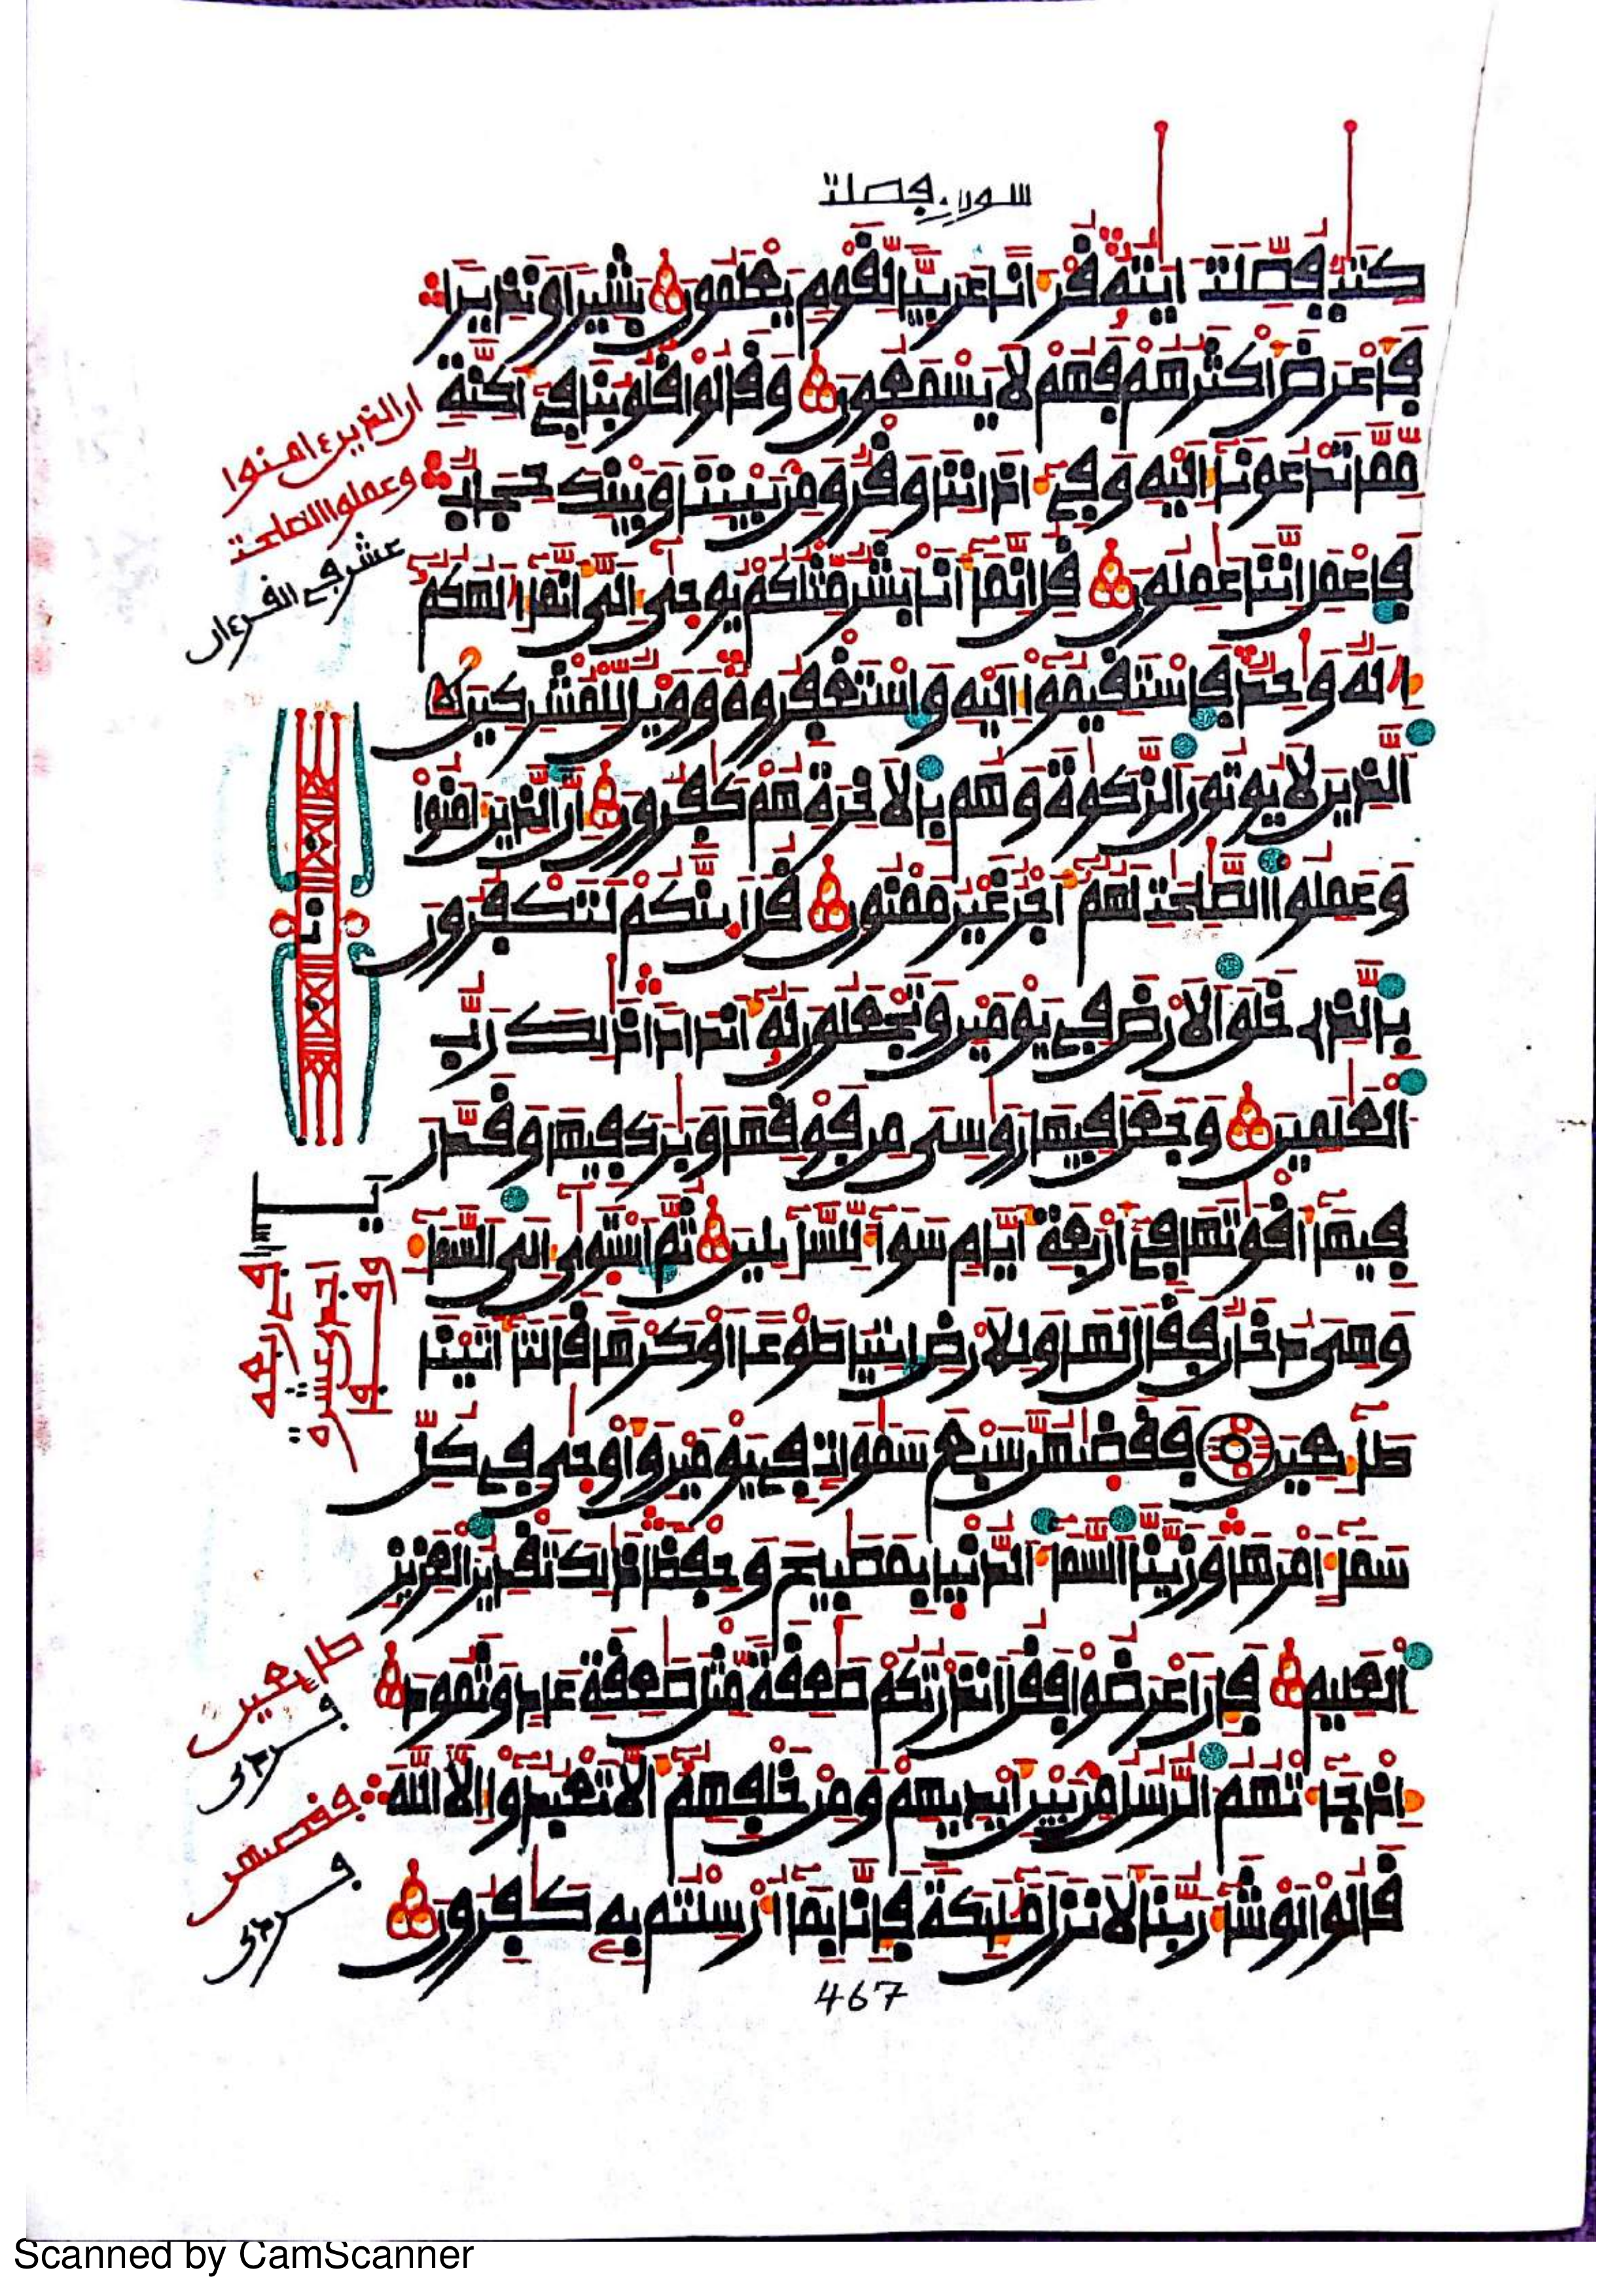 سورة فصلت
كتب فصلت ايته قرانا عربيا لقوم يعلمون بشيرا ونذيرا
فاعرض اكثرهم فهم لا يسمعون وقالوا قلوبنا في اكنة
مما تدعونا اليه وفي اذاننا وقر ومن بيننا وبينك حجاب
فاعمل اننا عملون قل انما انا بشر مثلكم يوحى الى انما الهكم
اله واحد فاستقيموا اليه واستغفروه وويل للمشركين
الذين لا يوتون الزكوة وهم بالاخرة هم كفرون ان الذين امنوا
وعملوا الصلحت لهم اجر غير ممنون قل اينكم لتكفرون
بالذي خلق الارض في يومين وتجعلون له اندادا ذلك رب
العلمين وجعل فيها روسى من فوقها وبرك فيها وقدر
فيها اقوتها في اربعة ايام سوا للسايلين ثم استوى الى السما
وهى دخان فقال لها وللارض ايتيا طوعا او كرها قالتا اتينا
طايعين فقضهن سبع سموات في يومين واوحى في كل
سما امرها وزينا السما الدنيا بمصبيح وحفظا ذلك تقدير العزيز
العليم فان اعرضوا فقل انذرتكم صعقة مثل صعقة عاد وثمود
اذ جاتهم الرسل من بين ايديهم ومن خلفهم الا تعبدوا الا الله
قالوا لو شا ربنا لانزل مليكة فانا بما ارسلتم به كفرون
467
ان الذين ءامنوا
وعملوا الصلحت
عشر في القرءان
طايعين
فقضهن
Scanned by CamScanner